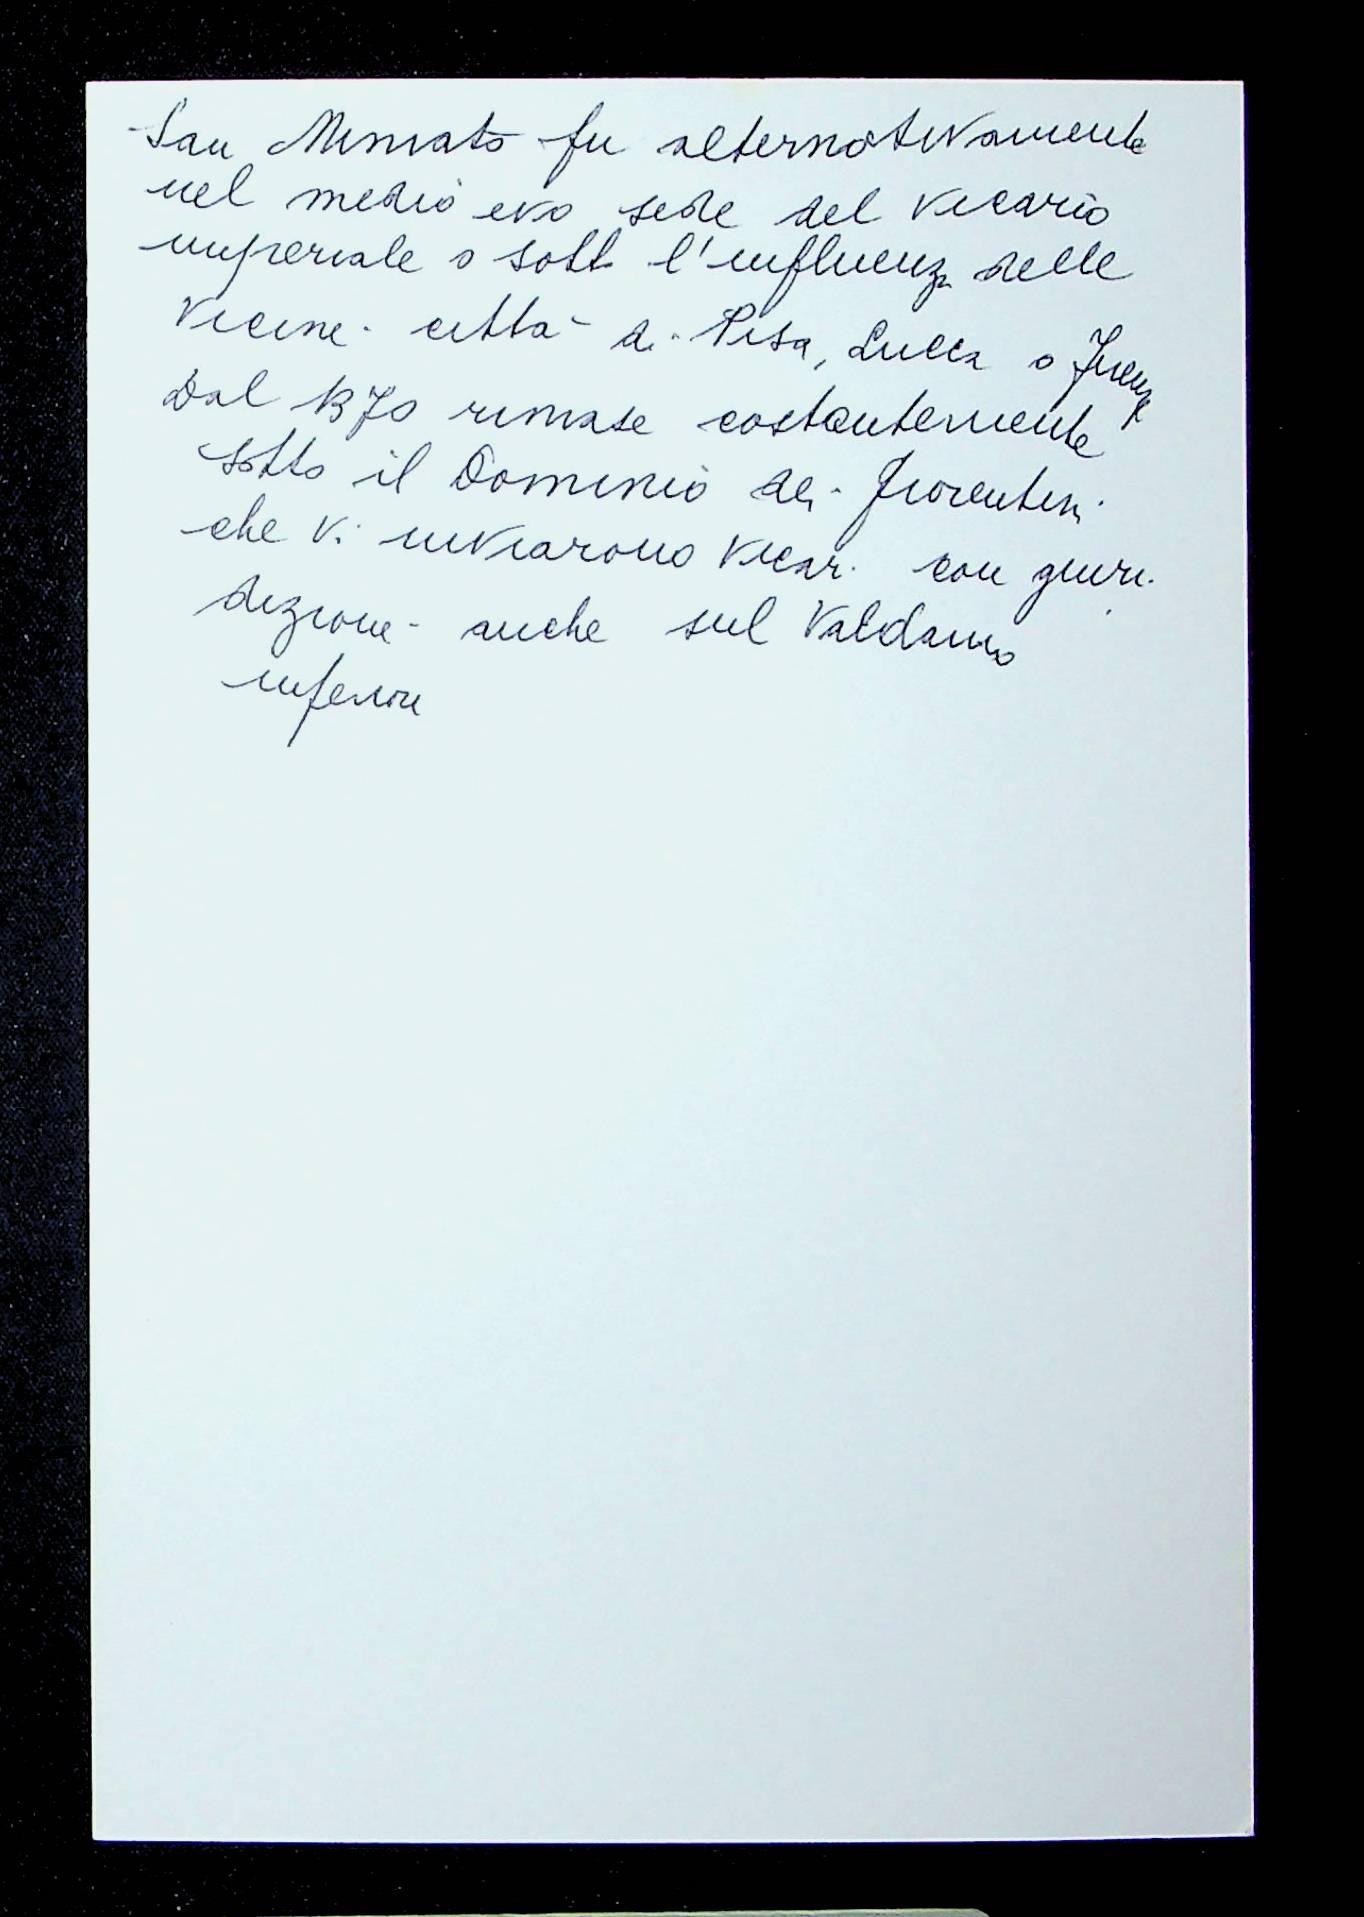 San Miniato fu alternativamente
nel medio evo sede del Vicario
imperiale o sotto l'influenza delle
Vicine città di Pisa, Lucca o Firenze
Dal 1370 rimase costantemente
sotto il Dominio dei Fiorentini
che vi inviarono Vicari con giuri-
dizione anche sul Valdarno
inferiore